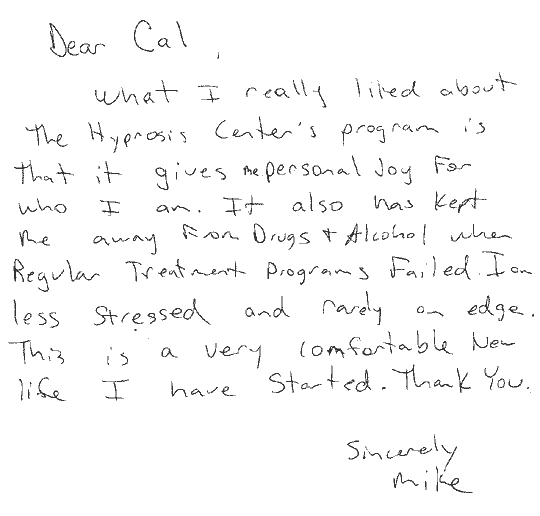 Dear Cal,
What I really liked about
The Hypnosis Center's program is
that it gives me personal Joy For
who I am. It also has kept
me away From Drugs + Alcohol when
Regular Treatment Programs Failed. I am
less stressed and rarely on edge.
This is a very comfortable New
life I have Started. Thank You.
Sincerely
Mike